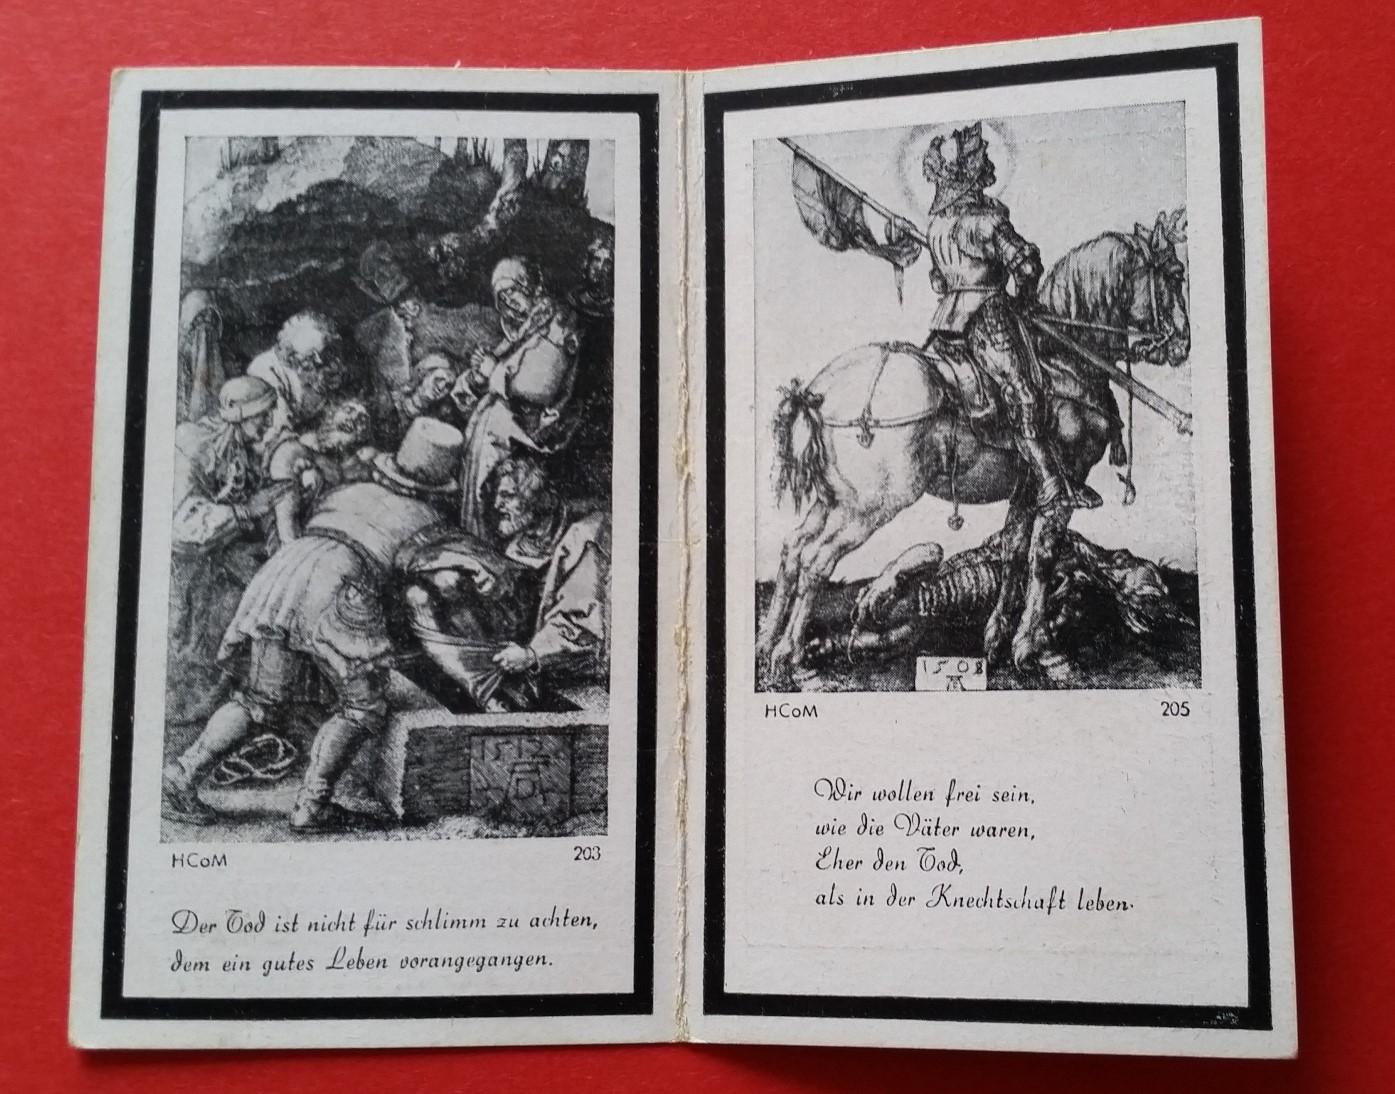 1512
AD
HCoM 203
Der Tod ist nicht für schlimm zu achten,
dem ein gutes Leben vorangegangen.
1508
AD
HCoM 205
Wir wollen frei sein,
wie die Väter waren,
Eher den Tod,
als in der Knechtschaft leben.